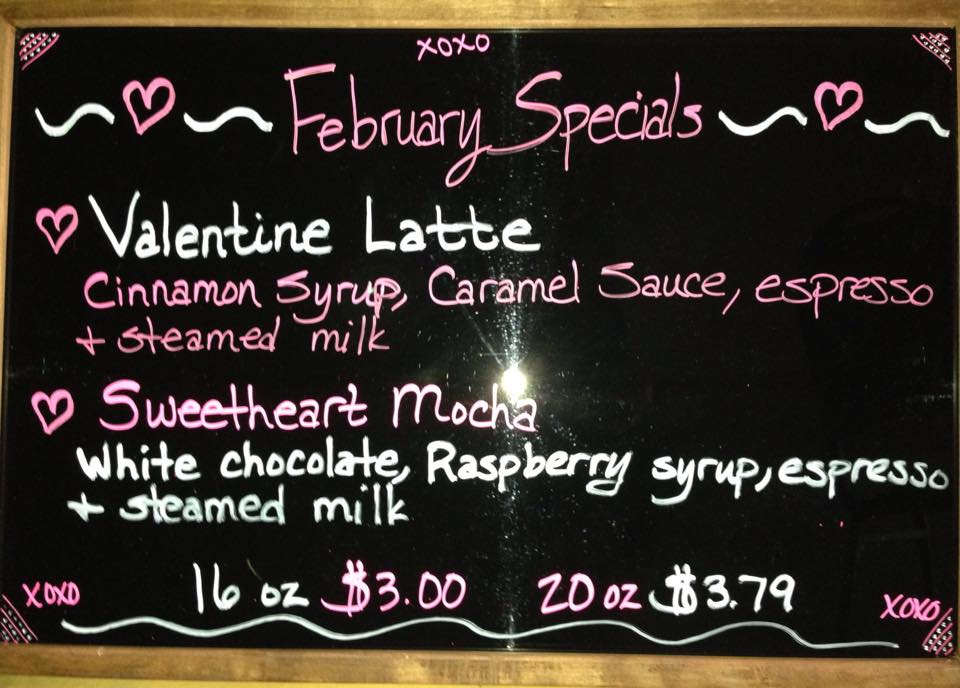 XOXO
February Specials
Valentine Latte
Cinnamon Syrup, Caramel Sauce, espresso
+ steamed milk
Sweetheart Mocha
White chocolate, Raspberry syrup, espresso
+ steamed milk
16 oz $3.00 20 oz $3.79
XOXO XOXO